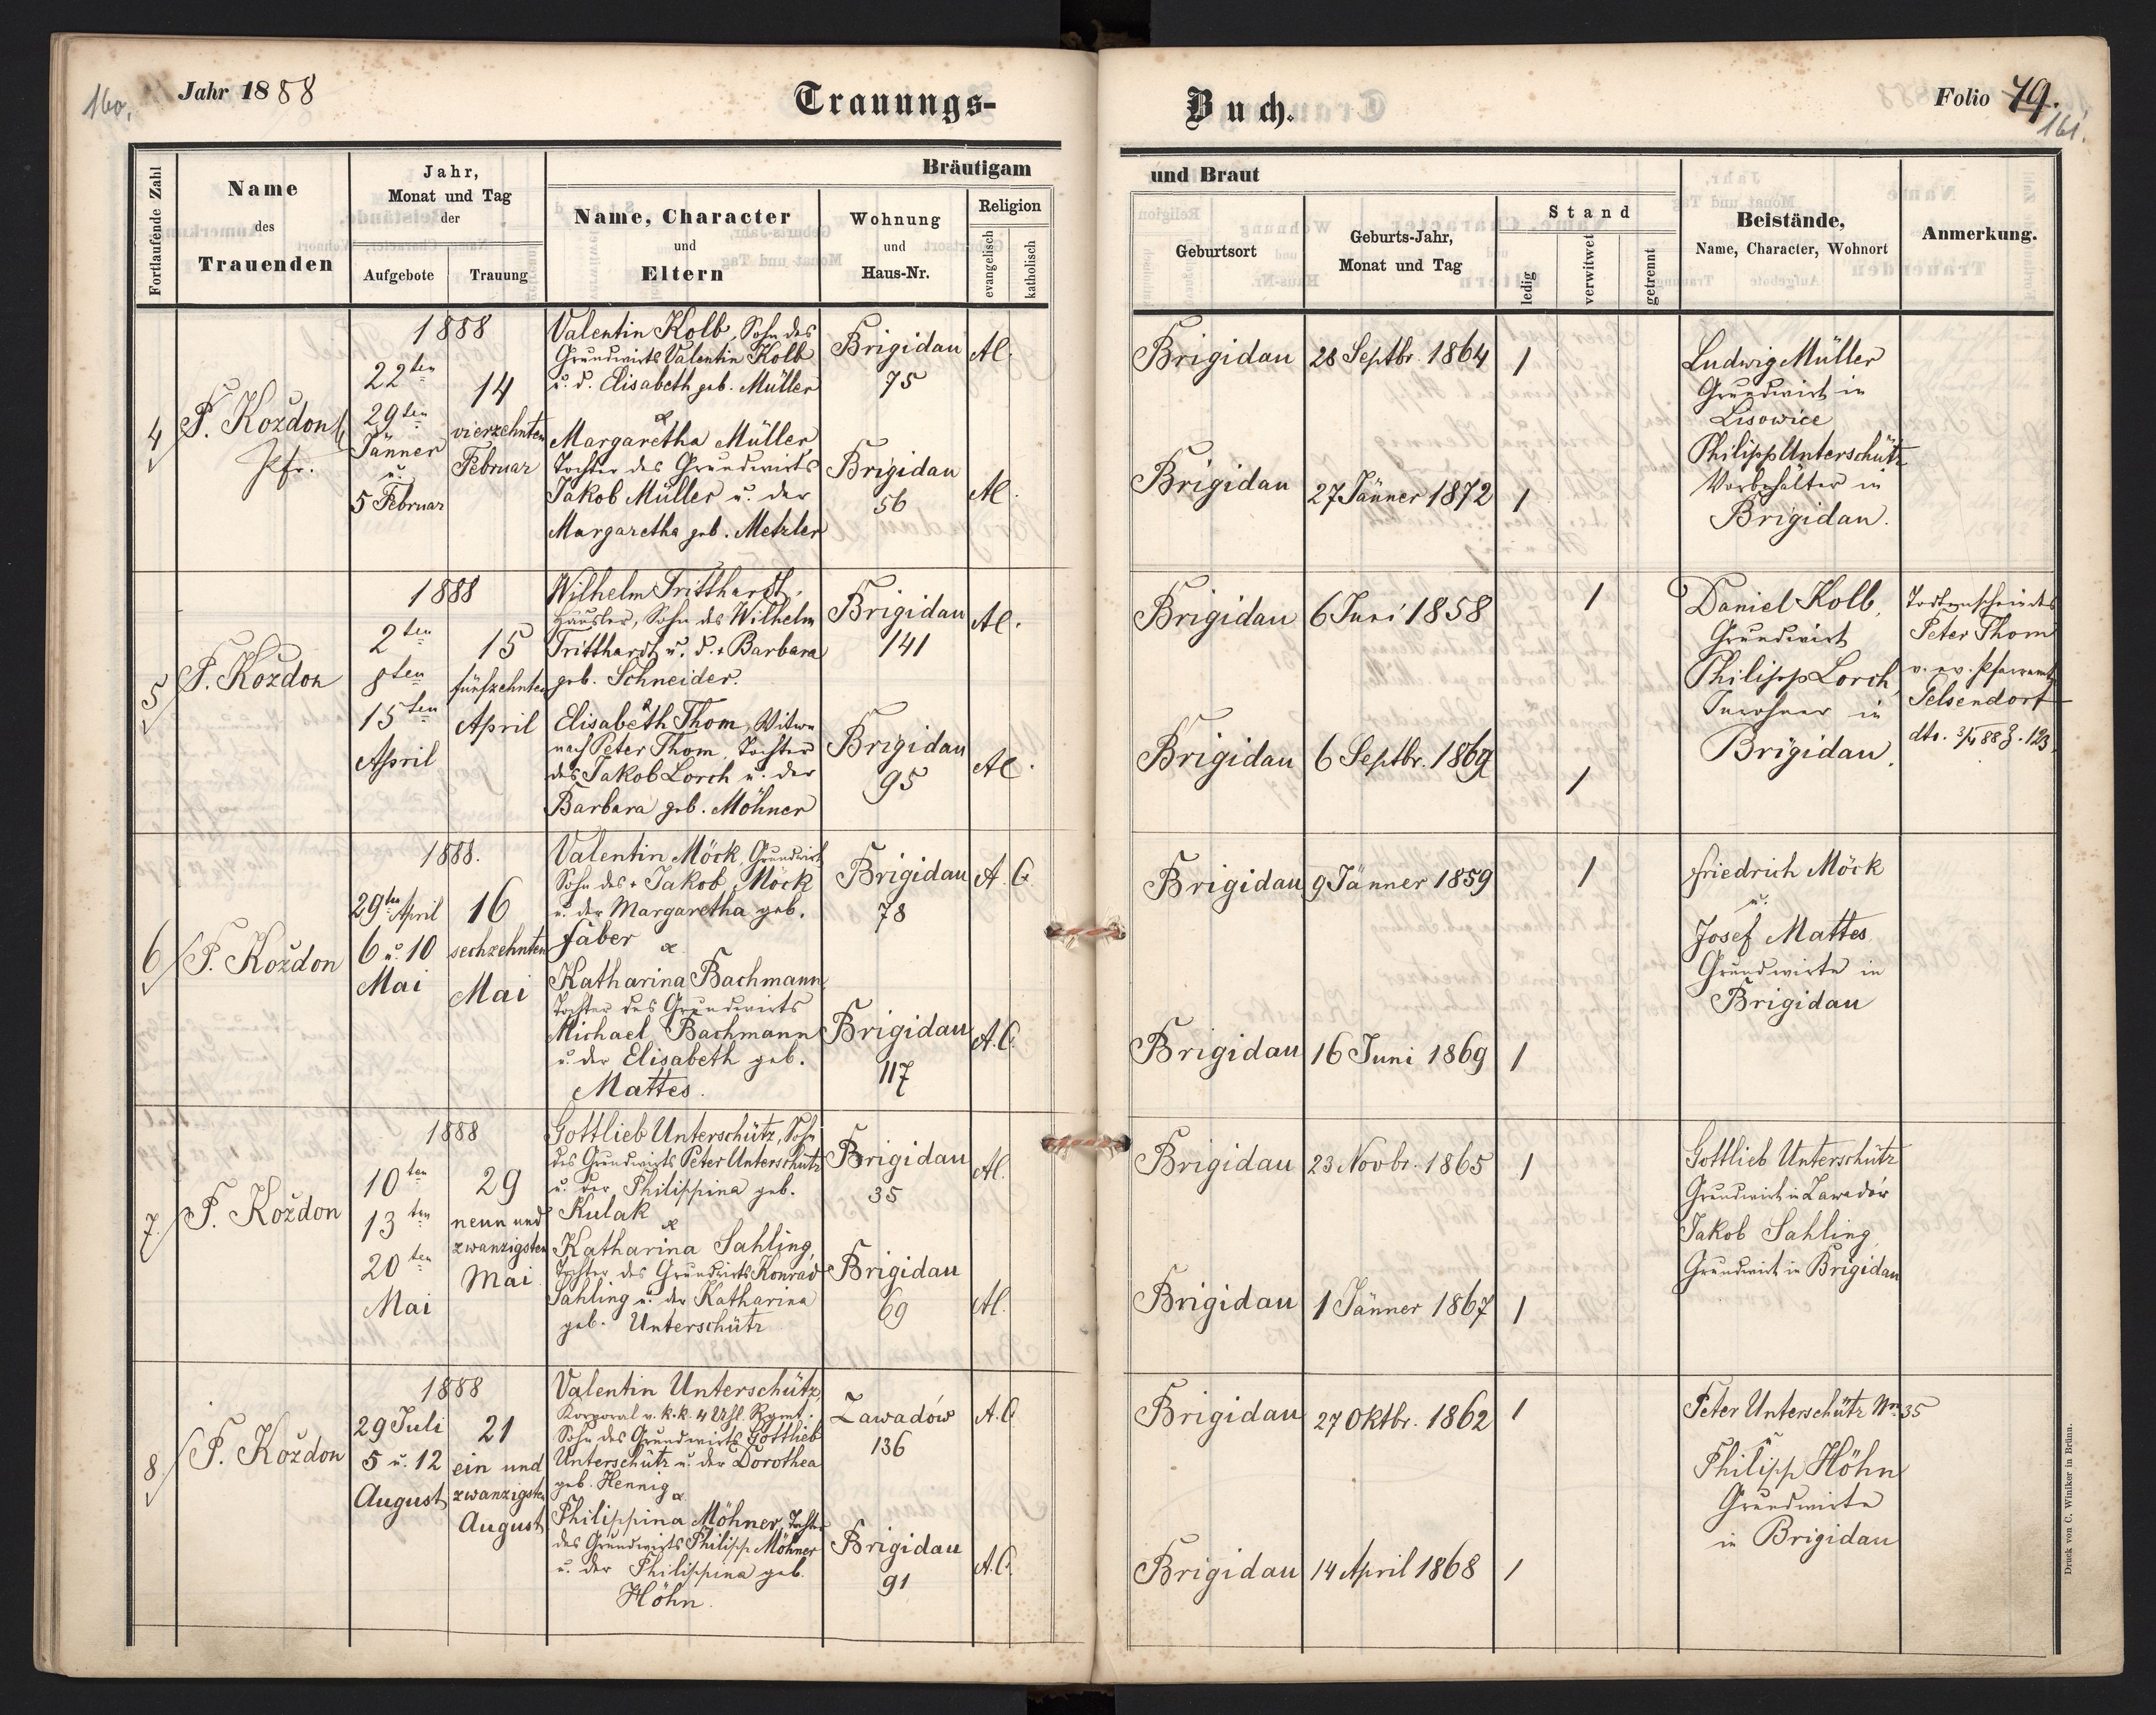 160.
Jahr 1888
Trauungs-
Buch.
Folio 79.
161.
Fortlaufende Zahl
Name
des
Trauenden
Jahr,
Monat und Tag
der
Aufgebote
Trauung
Bräutigam
und Braut
Name, Character
und
Eltern
Wohnung
und
Haus-Nr.
Religion
evangelisch
katholisch
Geburtsort
Geburts-Jahr,
Monat und Tag
Stand
ledig
verwitwet
getrennt
Beistände,
Name, Character, Wohnort
Anmerkung.
4
F. Koždon
Pfr.
1888
22ten
29ten
Jänner
u.
5 Februar
14
vierzehnten
Februar
Valentin Kolb, Sohn des
Grundwirts Valentin Kolb
u. d. Elisabeth geb. Müller
&
Margaretha Müller
Tochter des Grundwirts
Jakob Müller u. der
Margaretha geb. Metzler
Brigidau
75
Brigidau
56
AC.
AC.
Brigidau
28 Septbr. 1864
1
Brigidau
27 Jänner 1872
1
Ludwig Müller
Grundwirt in
Lisowice
Philipp Unterschütz
Vorbehälter in
Brigidau.
5
F. Koždon
1888
2ten
8ten
15ten
April
15
fünfzehnten
April
Wilhelm Tritthardt,
Häusler, Sohn des Wilhelm
Tritthardt u. d. + Barbara
geb. Schneider.
&
Elisabeth Thom, Witwe
nach Peter Thom, Tochter
des Jakob Lorch u. der
Barbara geb. Möhner
Brigidau
141
Brigidau
95
AC.
AC.
Brigidau
6 Juni 1858
1
Brigidau
6 Septbr. 1869
1
Daniel Kolb,
Grundwirt
Philipp Lorch,
Inwohner in
Brigidau.
Todtenschein des
Peter Thom
v. ev. Pfarramt
Gelsendorf
dto. 3/4 88 Z. 123.
6
F. Koždon
1888.
29ten April
6 u. 10
Mai
16
sechzehnten
Mai
Valentin Möck, Grundwirt
Sohn des + Jakob Möck
u. der Margaretha geb.
Faber
&
Katharina Bachmann
Tochter des Grundwirts
Michael Bachmann
u. der Elisabeth geb.
Mattes.
Brigidau
78
Brigidau
117
A. C.
A. C.
Brigidau
9 Jänner 1859
1
Brigidau
16 Juni 1869
1
Friedrich Möck
u.
Josef Mattes
Grundwirte in
Brigidau
7.
F. Koždon
1888
10ten
13ten
20ten
Mai
29
neun und
zwanzigsten
Mai
Gottlieb Unterschütz, Sohn
des Grundwirts Peter Unterschütz
u. der Philippina geb.
Kulak
&
Katharina Sahling,
Tochter des Grundwirts Konrad
Sahling u. der Katharina
geb. Unterschütz
Brigidau
35
Brigidau
69
AC.
AC.
Brigidau
23 Novbr. 1865
1
Brigidau
1 Jänner 1867
1
Gottlieb Unterschütz
Grundwirt in Zawadów
Jakob Sahling,
Grundwirt in Brigidau
8
F. Koždon
1888
29 Juli
5 u. 12
August
21
ein und
zwanzigsten
August
Valentin Unterschütz,
Korporal v. k. k. 4 Uhl. Rgmt.
Sohn des Grundwirts Gottlieb
Unterschütz u. der Dorothea
geb. Hennig
&
Philippina Möhner, Tochter
des Grundwirts Philipp Möhner
u. der Philippina geb.
Höhn.
Zawadów
136
Brigidau
91
A. C.
A. C.
Brigidau
27 Oktbr. 1862
1
Brigidau
14 April 1868
1
Peter Unterschütz Nr. 35
u
Philipp Höhn
Grundwirte
in Brigidau
Druck von C. Winiker in Brünn.